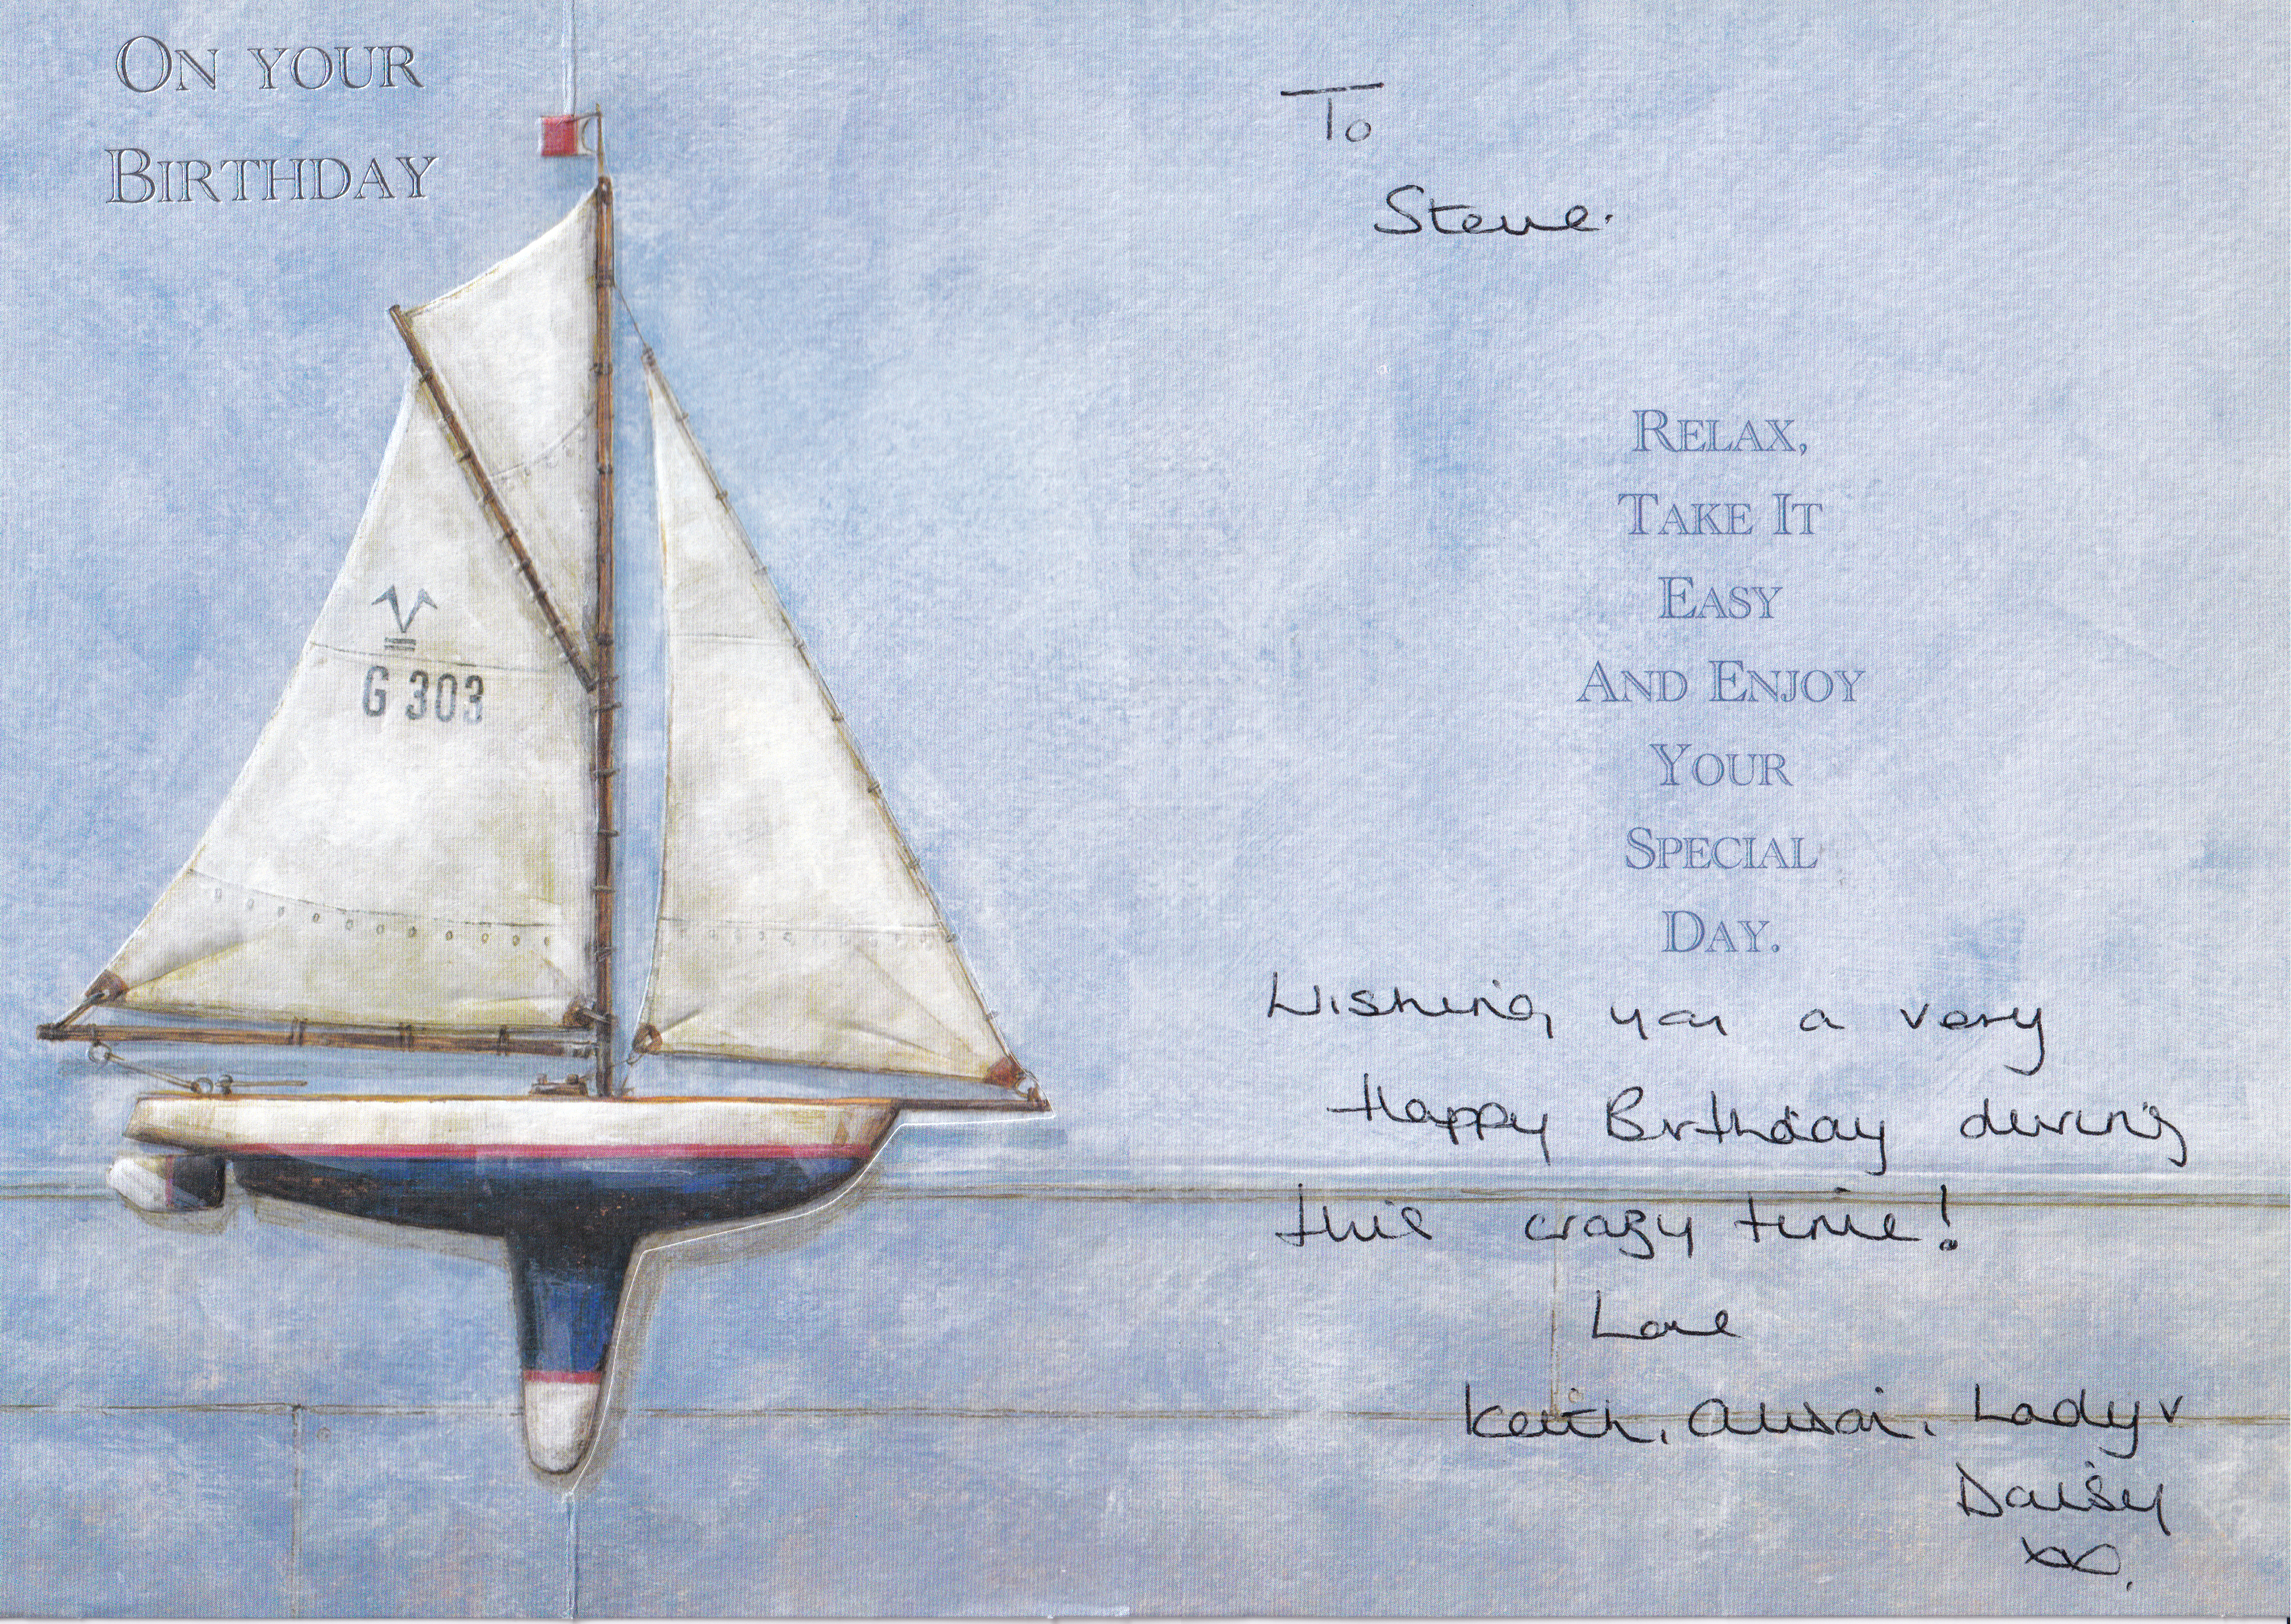 ON YOUR
BIRTHDAY
G 303
To
Steve.
RELAX,
TAKE IT
EASY
AND ENJOY
YOUR
SPECIAL
DAY.
Wishing you a very
Happy Birthday during
this crazy time!
Love
Keith, Alison, Lady v
Daisy
xx.